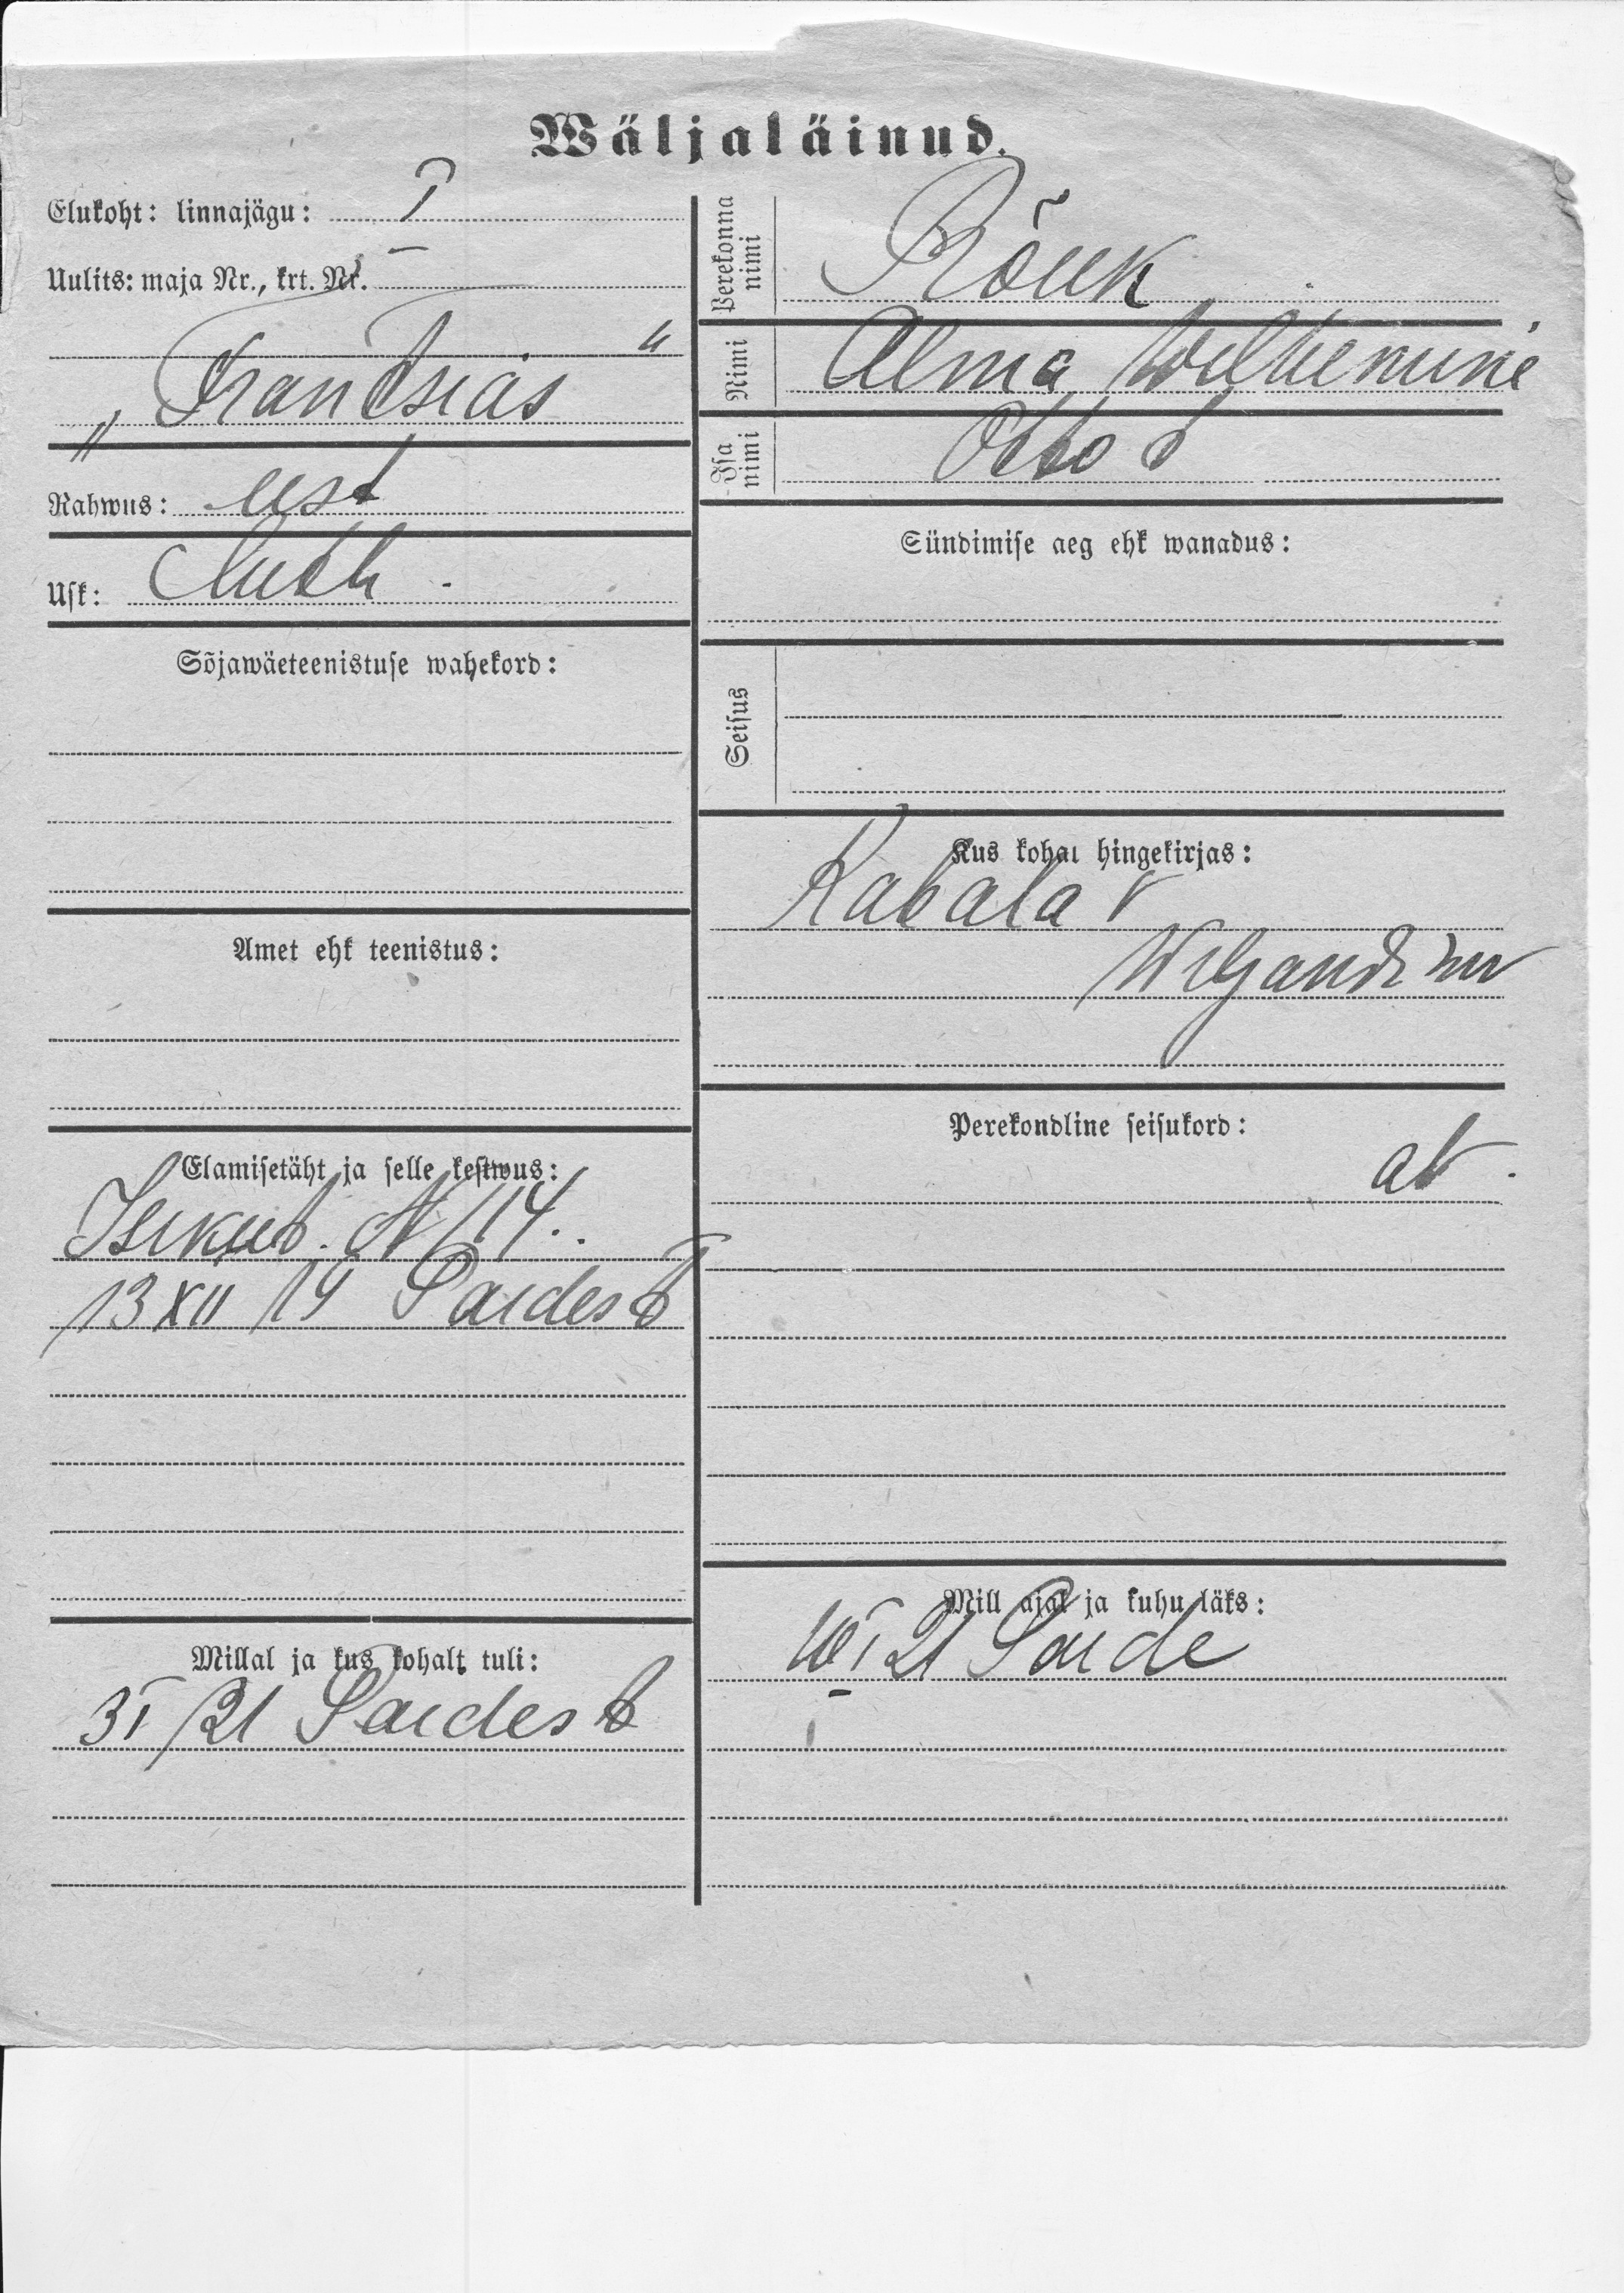 Wäljaläinud.
Elukoht: linnajägu: I
Uulits: maja Nr., krt. Nr.
„Trantsias“
Rahwus: est
Usk: Luth.
Sõjawäeteenistuse wahekord:
Amet ehk teenistus:
Elamisetäht ja selle kestwus:
Isikut. N 114.
13 XII 19 Paidest
Millal ja kus kohalt tuli:
3 I 21 Paidest
Perekonna nimi Rõuk
Nimi Alma Wilhelmine
Isa nimi Otto t
Sündimise aeg ehk wanadus:
Seisus
Kus kohal hingekirjas:
Kabala v
Wiljandi m
Perekondline seisukord:
ab.
Mill ajal ja kuhu läks:
10 I 21 Paide